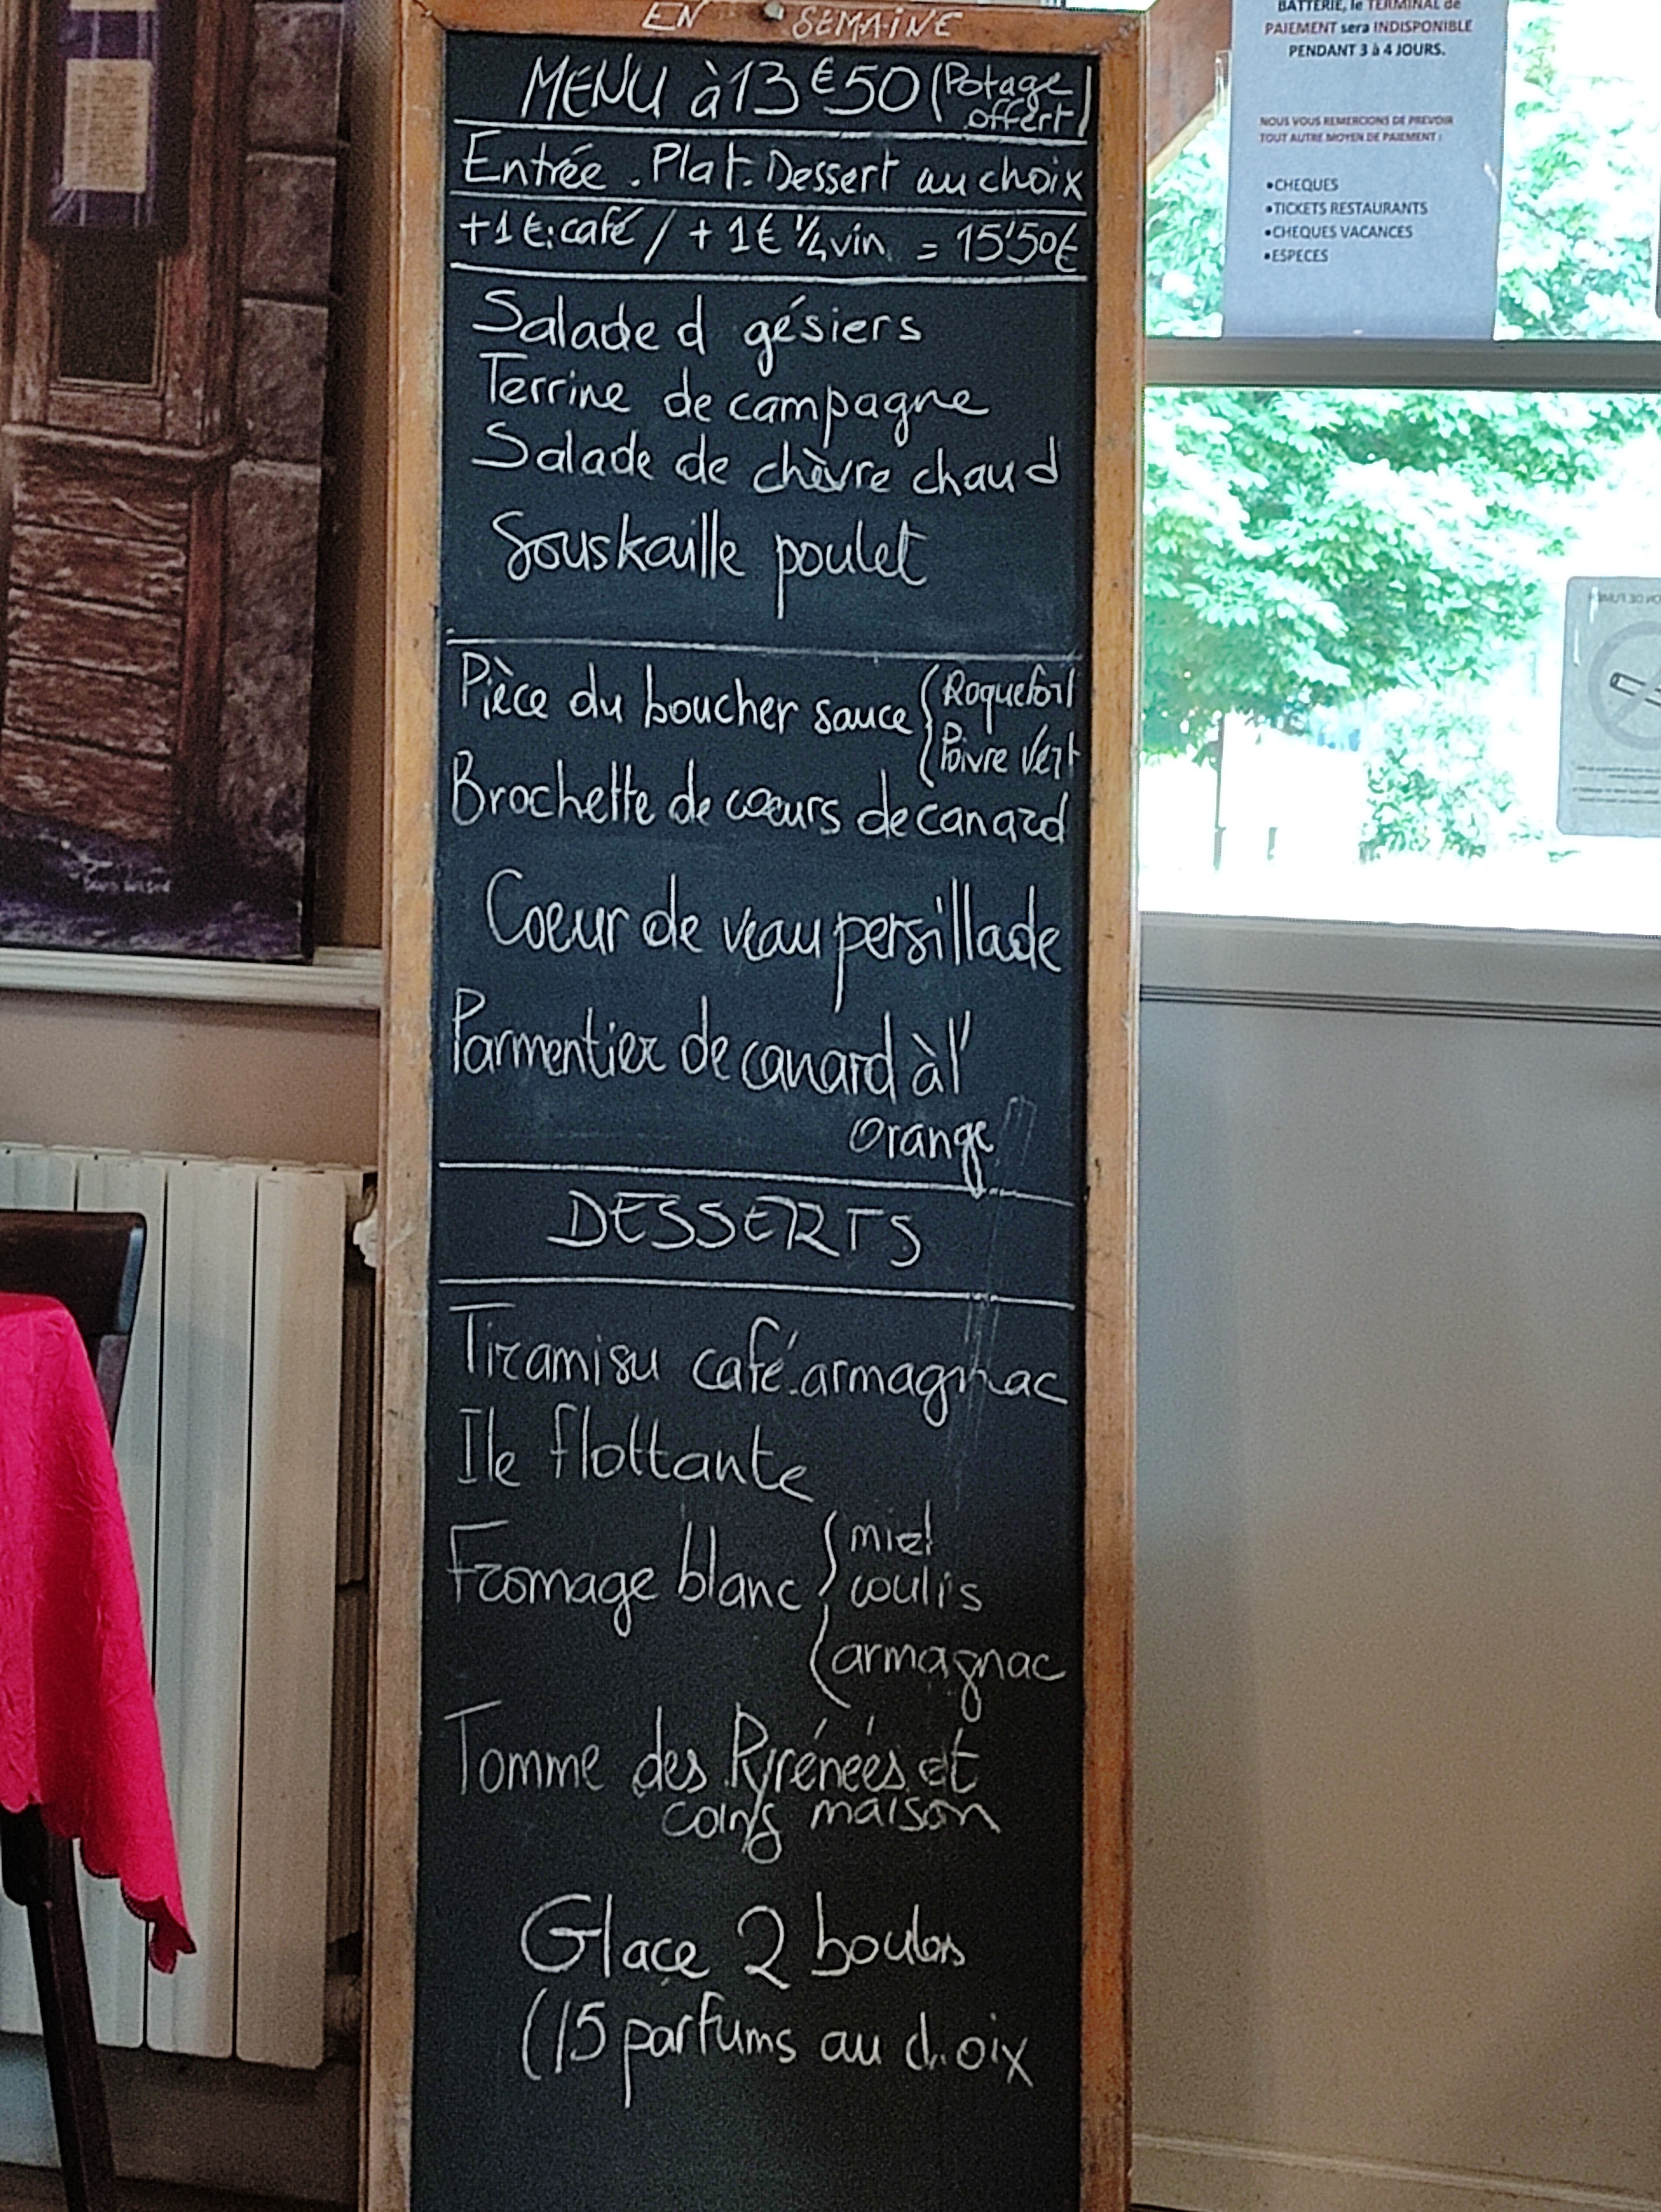 EN SEMAINE
MENU à 13€50 (Potage offert)
Entrée . Plat . Dessert au choix
+1€: café / + 1€ 1/4 vin = 15'50€
Salade d gésiers
Terrine de campagne
Salade de chèvre chaud
Souskaille poulet
Pièce du boucher sauce { Roquefort
Poivre Vert
Brochette de coeurs de canard
Coeur de veau persillade
Parmentier de canard à l'
orange
DESSERTS
Tiramisu café.armagnac
Ile flottante
Fromage blanc { miel
coulis
armagnac
Tomme des Pyrénées et
coing maison
Glace 2 boules
(15 parfums au choix
BATTERIE, le TERMINAL de
PAIEMENT sera INDISPONIBLE
PENDANT 3 à 4 JOURS.
NOUS VOUS REMERCIONS DE PREVOIR
TOUT AUTRE MOYEN DE PAIEMENT :
•CHEQUES
•TICKETS RESTAURANTS
•CHEQUES VACANCES
•ESPECES